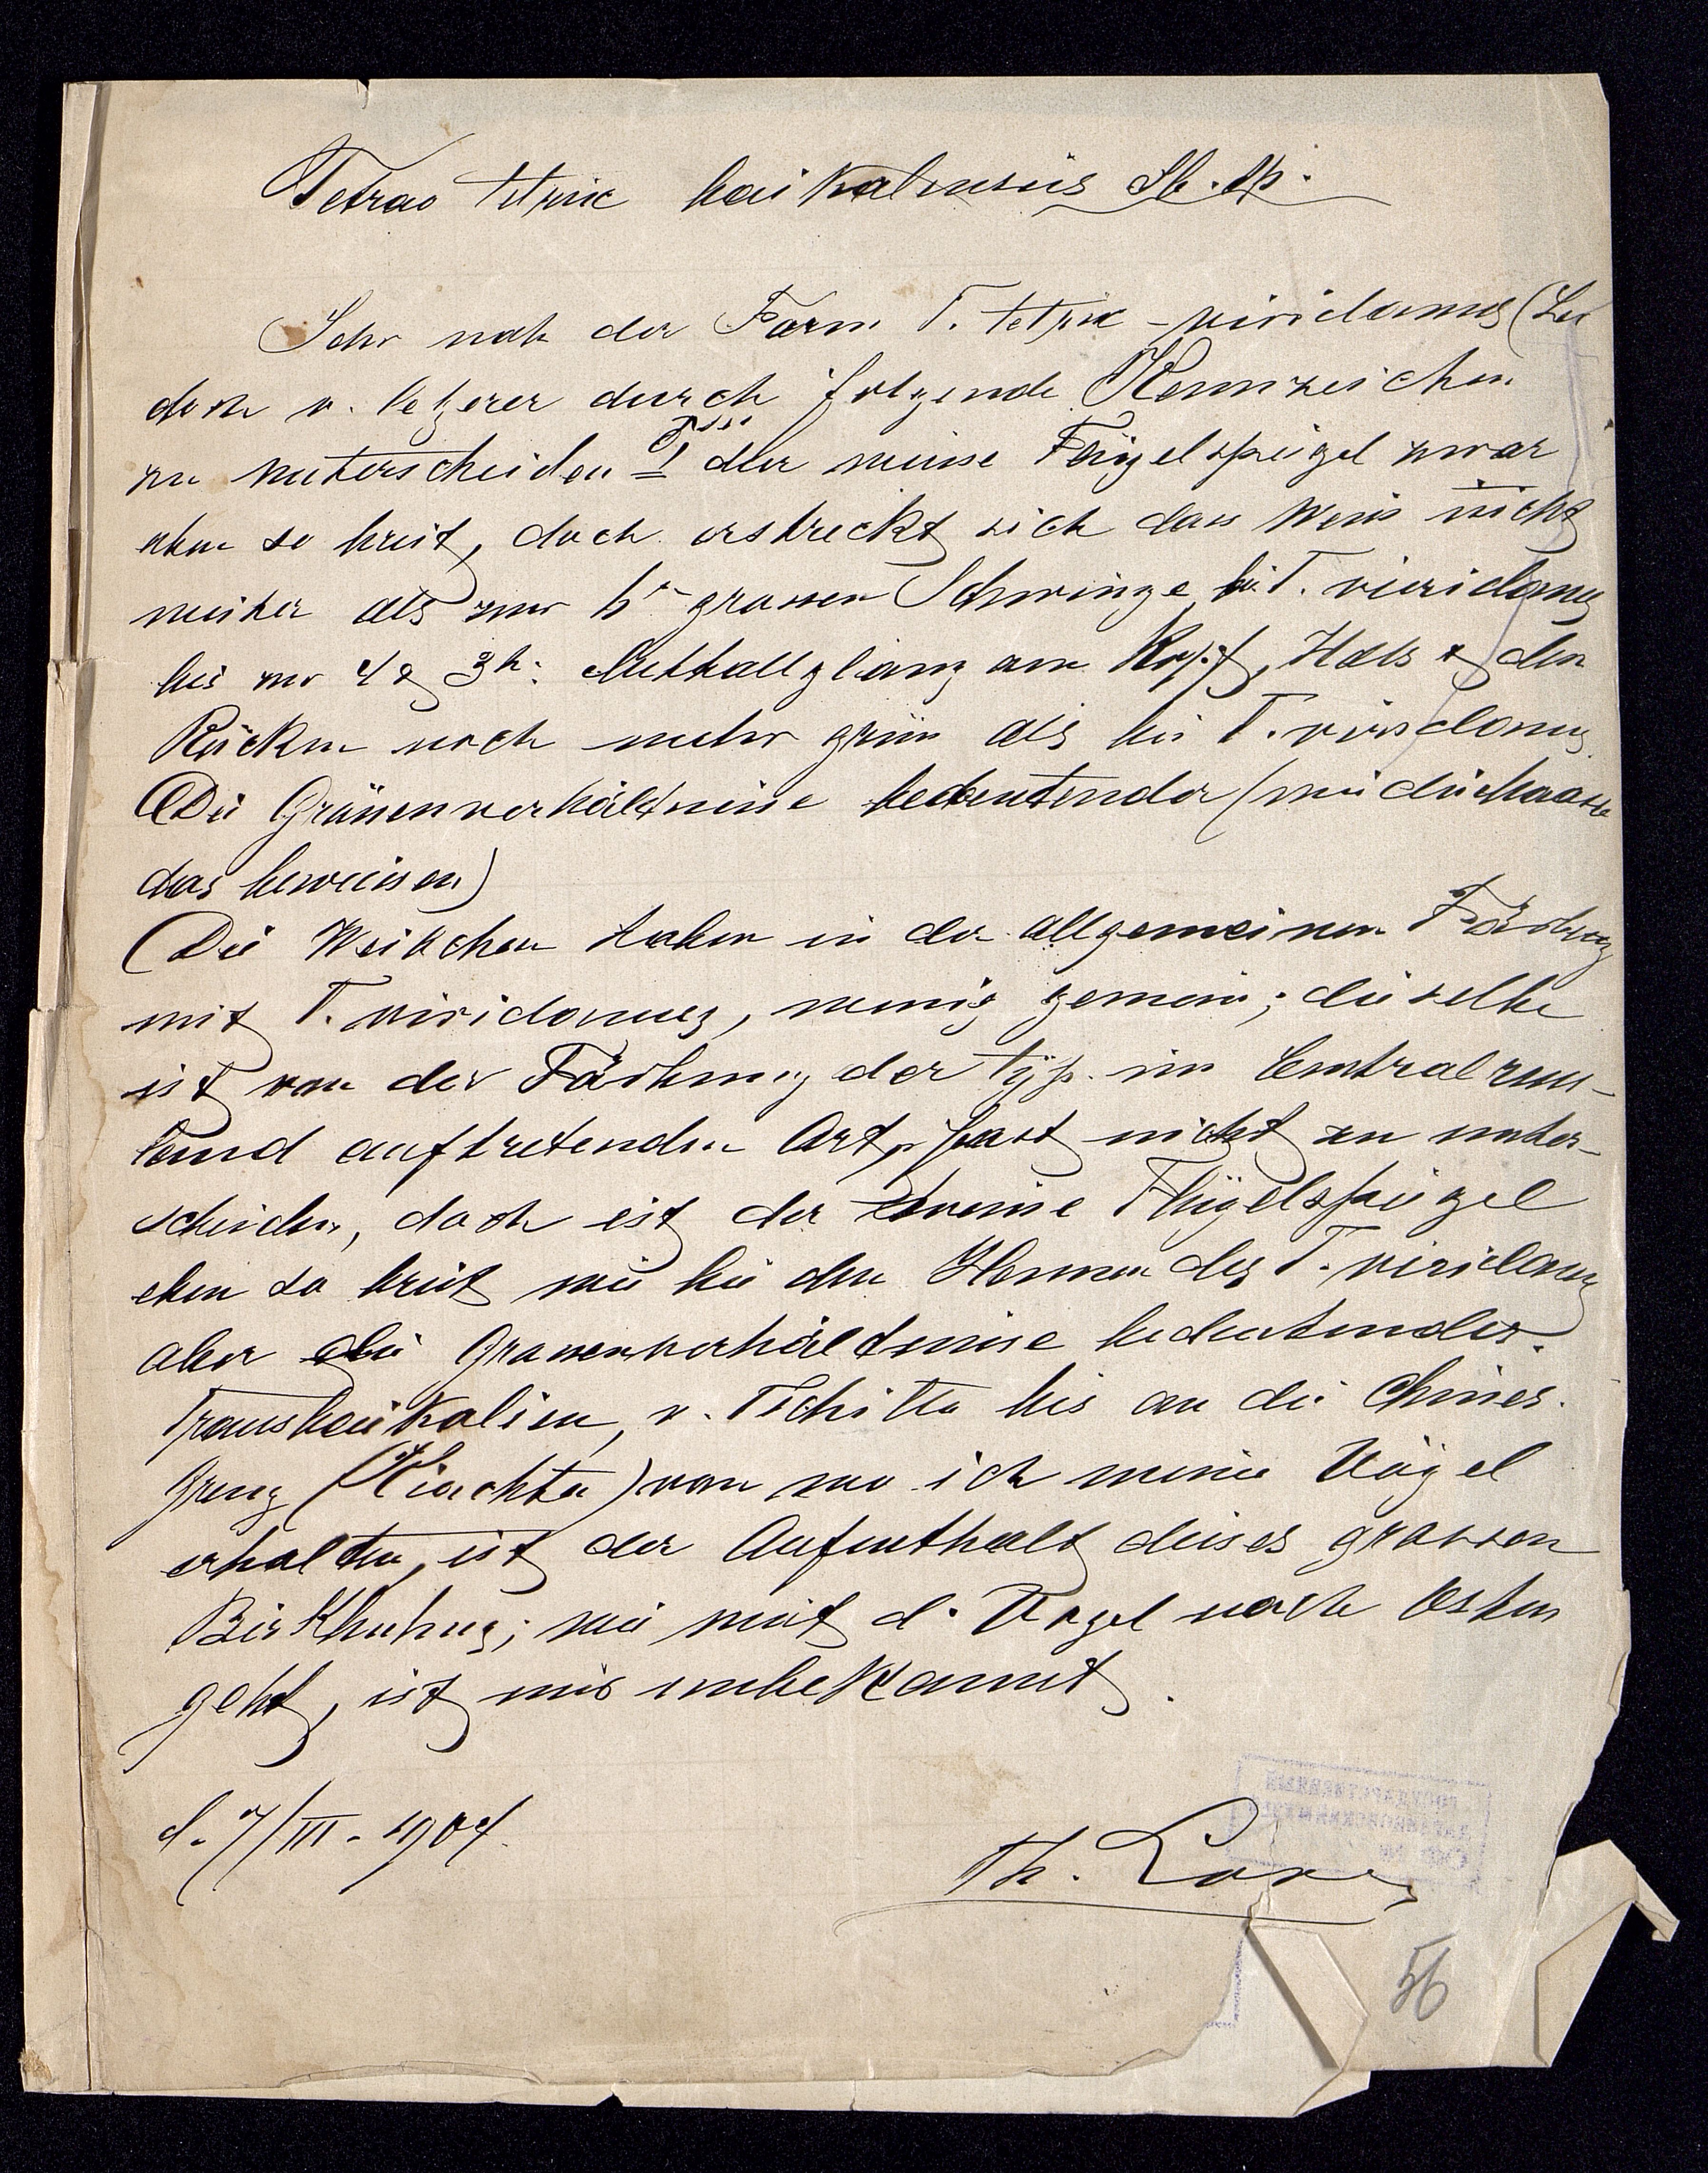 Tetrao tetrix baikalensis Sb. sp.
Sehr nah der Form T. tetrix-viridanus
doch v. letzerer durch folgende Kennzeichen
zu unterscheiden der weisse Flügelspiegel zwar
eben so breit, doch erstreckt sich das Weis nicht
weiter als zur 6ⁿ grossen Schwinge, bei T. viridanus
bis zur 4 & 3ⁿ. Methallglanz am Kopf, Hals & den
Rücken noch mehr grün als bei T. viridanus
Die Grössenverhältnisse bedeutender (wie die Maasse
das beweisen)
Die Weibchen haben in der allgemeinen Färbung
mit T. viridanus, wenig gemein; dieselbe
ist von der Färbung der typ. im Centralruss-
land auftretenden Art, fast nicht zu unter-
scheiden, doch ist der weisse Flügelspiegel
eben so breit wie bei den Hennen des T. viridanus
aber die Grossenverhältnisse bedeutender.
Transbaikalien, v. Tschitta bis an die Chines.
Grenz (Kiachta) von wo ich meine Vögel
erhalten, ist der Aufenthalt dieses grossen
Birkhuhns; wie weit d. Vogel nach Osten
geht, ist mir unbekannt.
d. 7/III. 1904.
Th. Lorenz
56